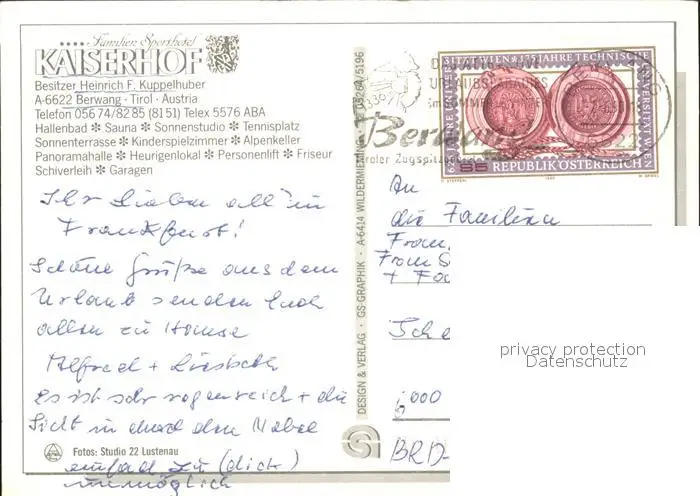 Familien Sporthotel
KAISERHOF
Besitzer Heinrich F. Kuppelhuber
A-6622 Berwang · Tirol · Austria
Telefon 05674/8285 (8151) Telex 5576 ABA
Hallenbad ✻ Sauna ✻ Sonnenstudio ✻ Tennisplatz
Sonnenterrasse ✻ Kinderspielzimmer ✻ Alpenkeller
Panoramahalle ✻ Heurigenlokal ✻ Personenlift ✻ Friseur
Schiverleih ✻ Garagen
Ihr Lieben all in
Frankfurt!
Schöne Grüße aus dem
Urlaub senden Euch
allen zu Hause
Alfred + Liesbeth
Es ist sehr regenreich + die
Sicht in durch den Nebel
einfach zu (dick)
unmöglich
Fotos: Studio 22 Lustenau
DESIGN & VERLAG · GS-GRAPHIK · A-6414 WILDERMIEMING · 05264/5196
625 JAHRE UNIVERSITÄT WIEN 175 JAHRE TECHNISCHE UNIVERSITÄT WIEN
S5 REPUBLIK ÖSTERREICH
Berwang
Tiroler Zugspitz
An
die Familien
From
+
BRD-
privacy protection
Datenschutz